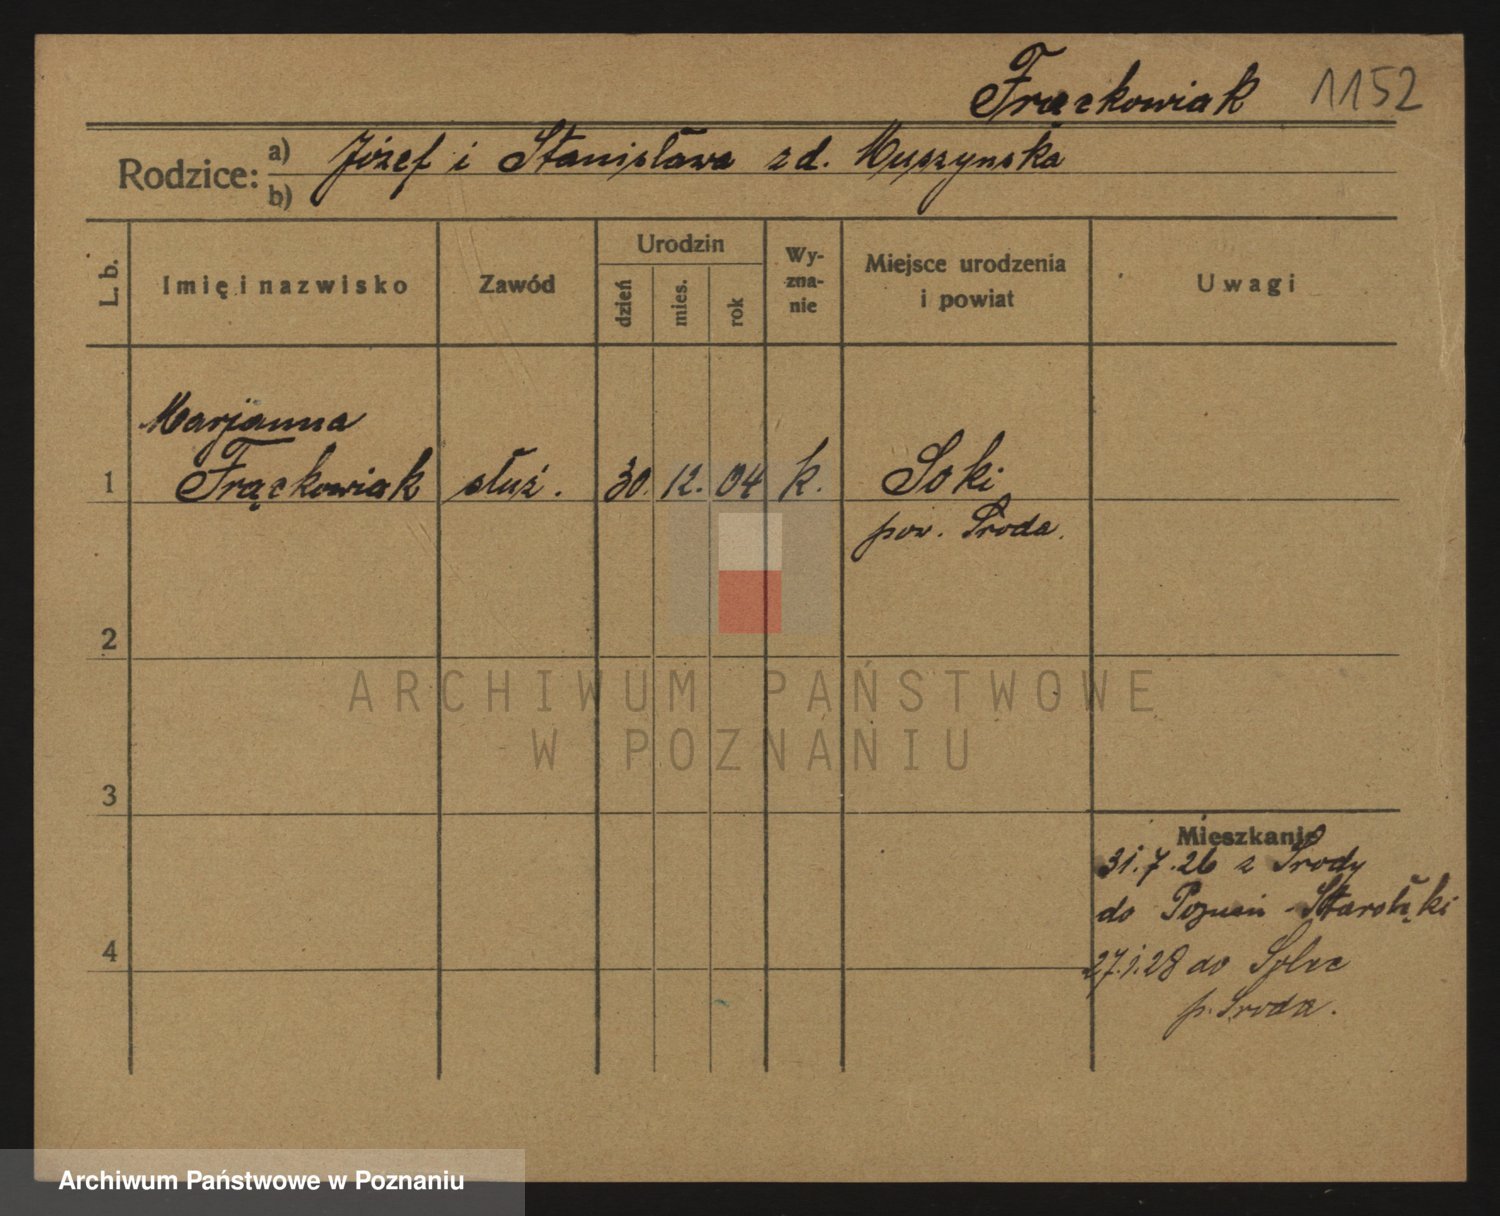 Frąckowiak 1152
Rodzice: a) Józef i Stanisława zd. Muszynska
b)
L. b. Imię i nazwisko Zawód Urodzin dzień mies. rok Wy-zna-nie Miejsce urodzenia i powiat Uwagi
Marjanna
1 Frąckowiak służ. 30. 12. 04 k. Soki
pow. Środa.
2
ARCHIWUM PAŃSTWOWE
W POZNANIU
3
Mieszkanie
31.7.26 z Środy
do Poznań - Starołęki
4
27.1.28 do Solec
p. Środa.
Archiwum Państwowe w Poznaniu